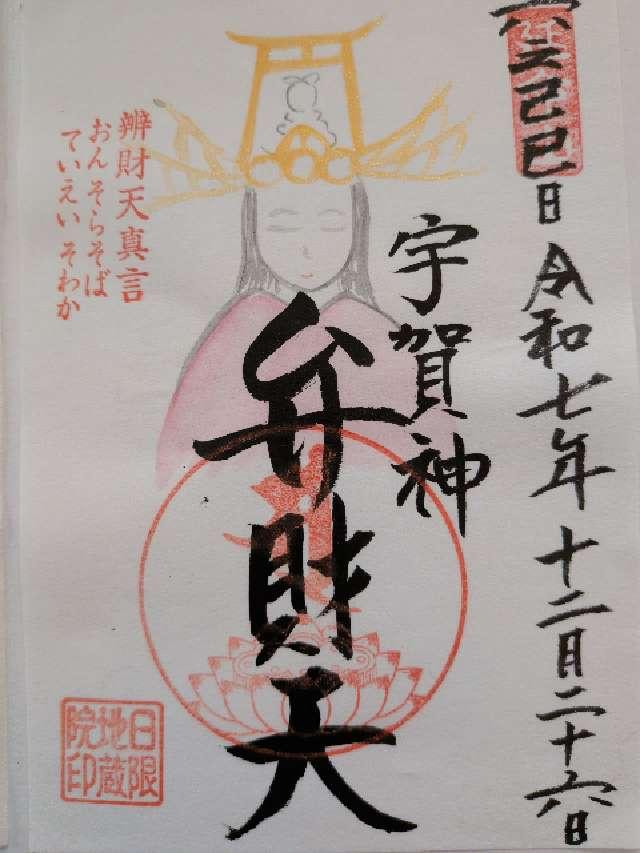 己巳日 令和七年 十二月二十六日
宇賀神
弁財天
辨財天真言
おんそらそば
ていえいそわか
日限
地蔵
院印